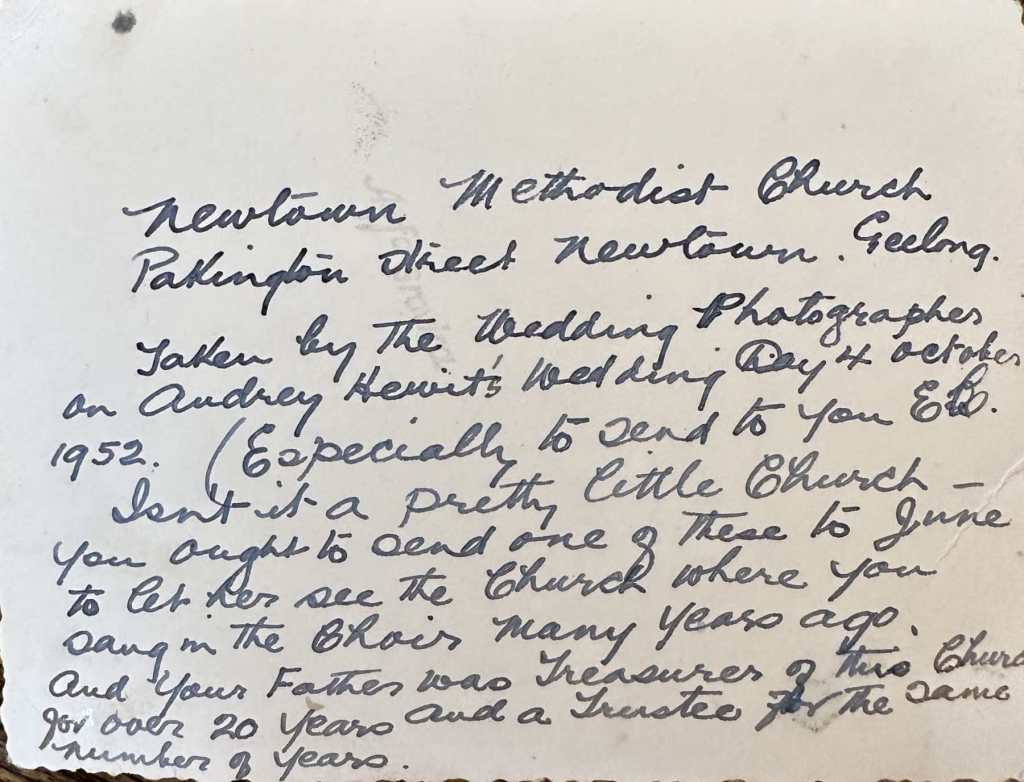 Newtown Methodist Church
Pakington Street Newtown. Geelong.
Taken by the Wedding Photographer
on Audrey Hewit's Wedding Day 4 October
1952. (Especially to send to you
Isn't it a pretty little Church –
you ought to send one of these to June
to let her see the Church where you
sang in the Choir many years ago.
And Your Father was Treasurer of this Churc
for over 20 years and a Trustee for the same
number of years.